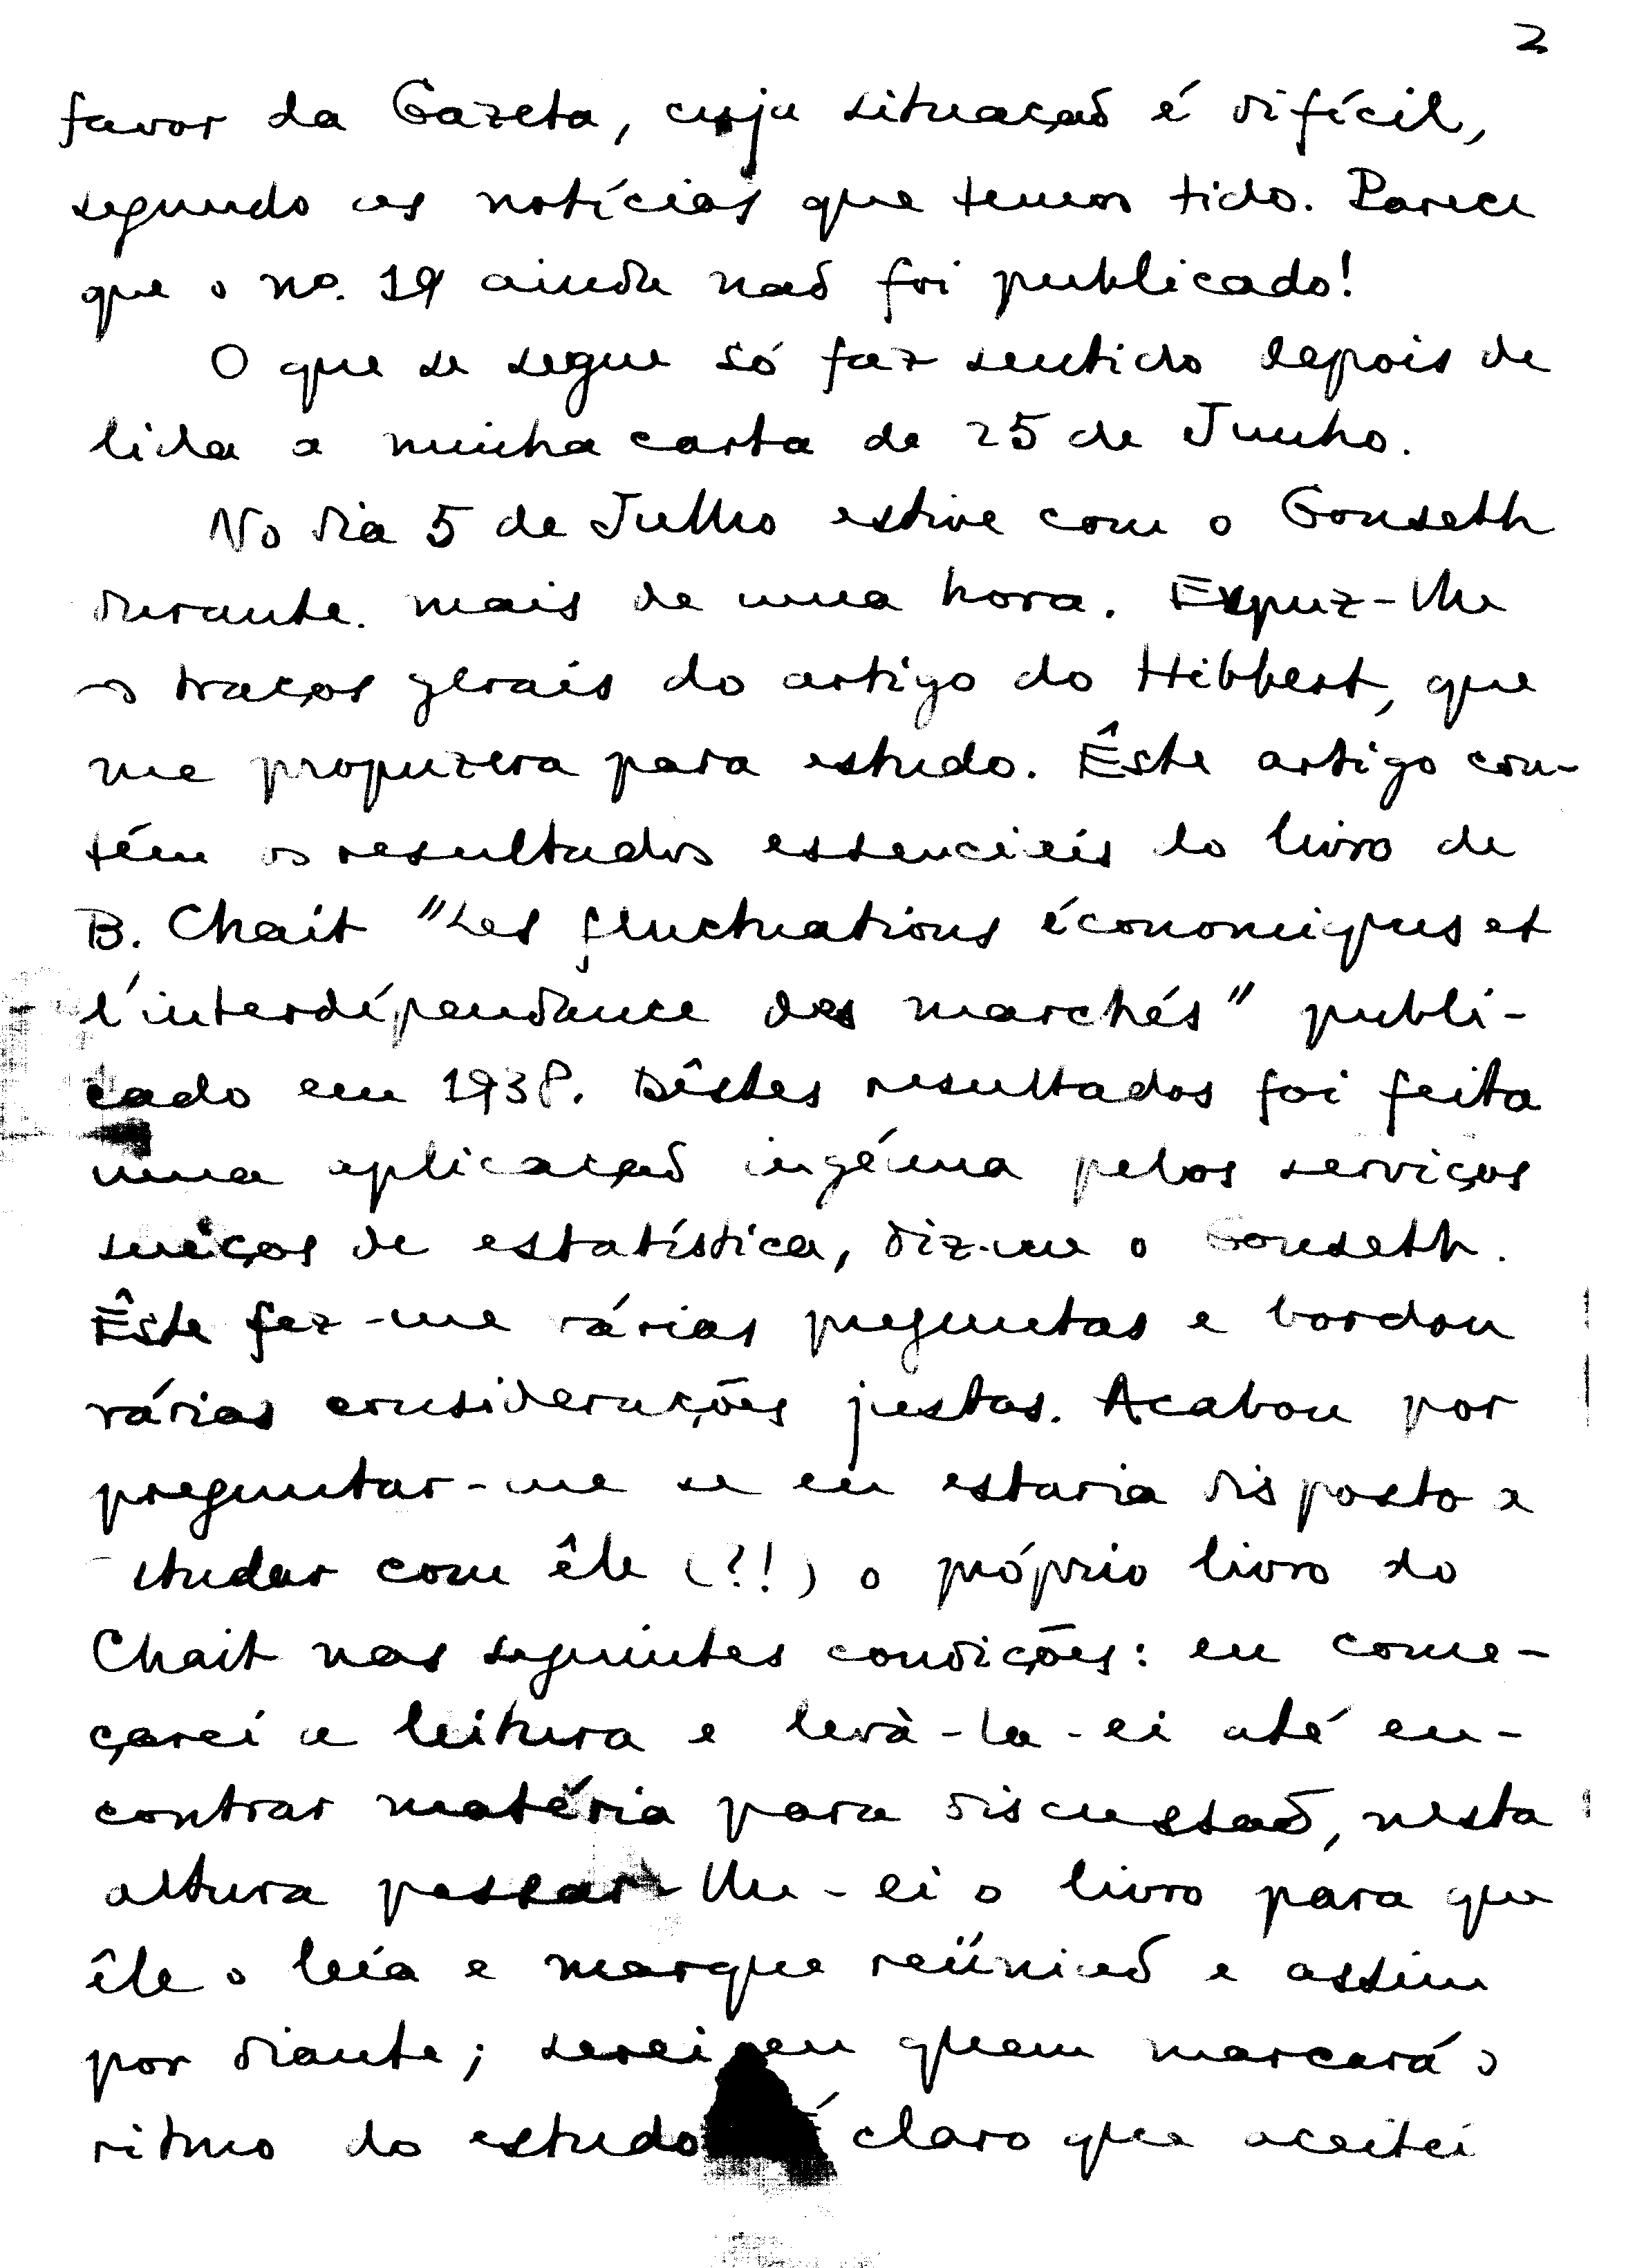 2
favor da Gazeta, cuja situação é difícil,
segundo as notícias que temos tido. Parece
que o nº. 19 ainda não foi publicado!
O que se segue só faz sentido depois de
lida a minha carta de 25 de Junho.
No dia 5 de Julho estive com o Gonseth
durante mais de uma hora. Expuz-lhe
os traços gerais do artigo do Hibbert, que
me propuzera para estudo. Êste artigo con-
tém os resultados essenciais do livro de
B. Chait "Les fluctuations économiques et
l'interdépendance des marchés" publi-
cado em 1938. Dêstes resultados foi feita
uma aplicação ingénua pelos serviços
suiços de estatística, diz-me o Gonseth.
Êste fez-me várias preguntas e bordou
várias considerações justas. Acabou por
preguntar-me se eu estaria disposto a
studar com êle (?!) o próprio livro do
Chait nas seguintes condições: eu come-
çarei a leitura e levà-la-ei até en-
contrar matéria para discussão, nesta
altura passar-lhe-ei o livro para que
êle o leia e marque reünião e assim
por diante; serei eu quem marcará o
ritmo do estudo É claro que aceitei